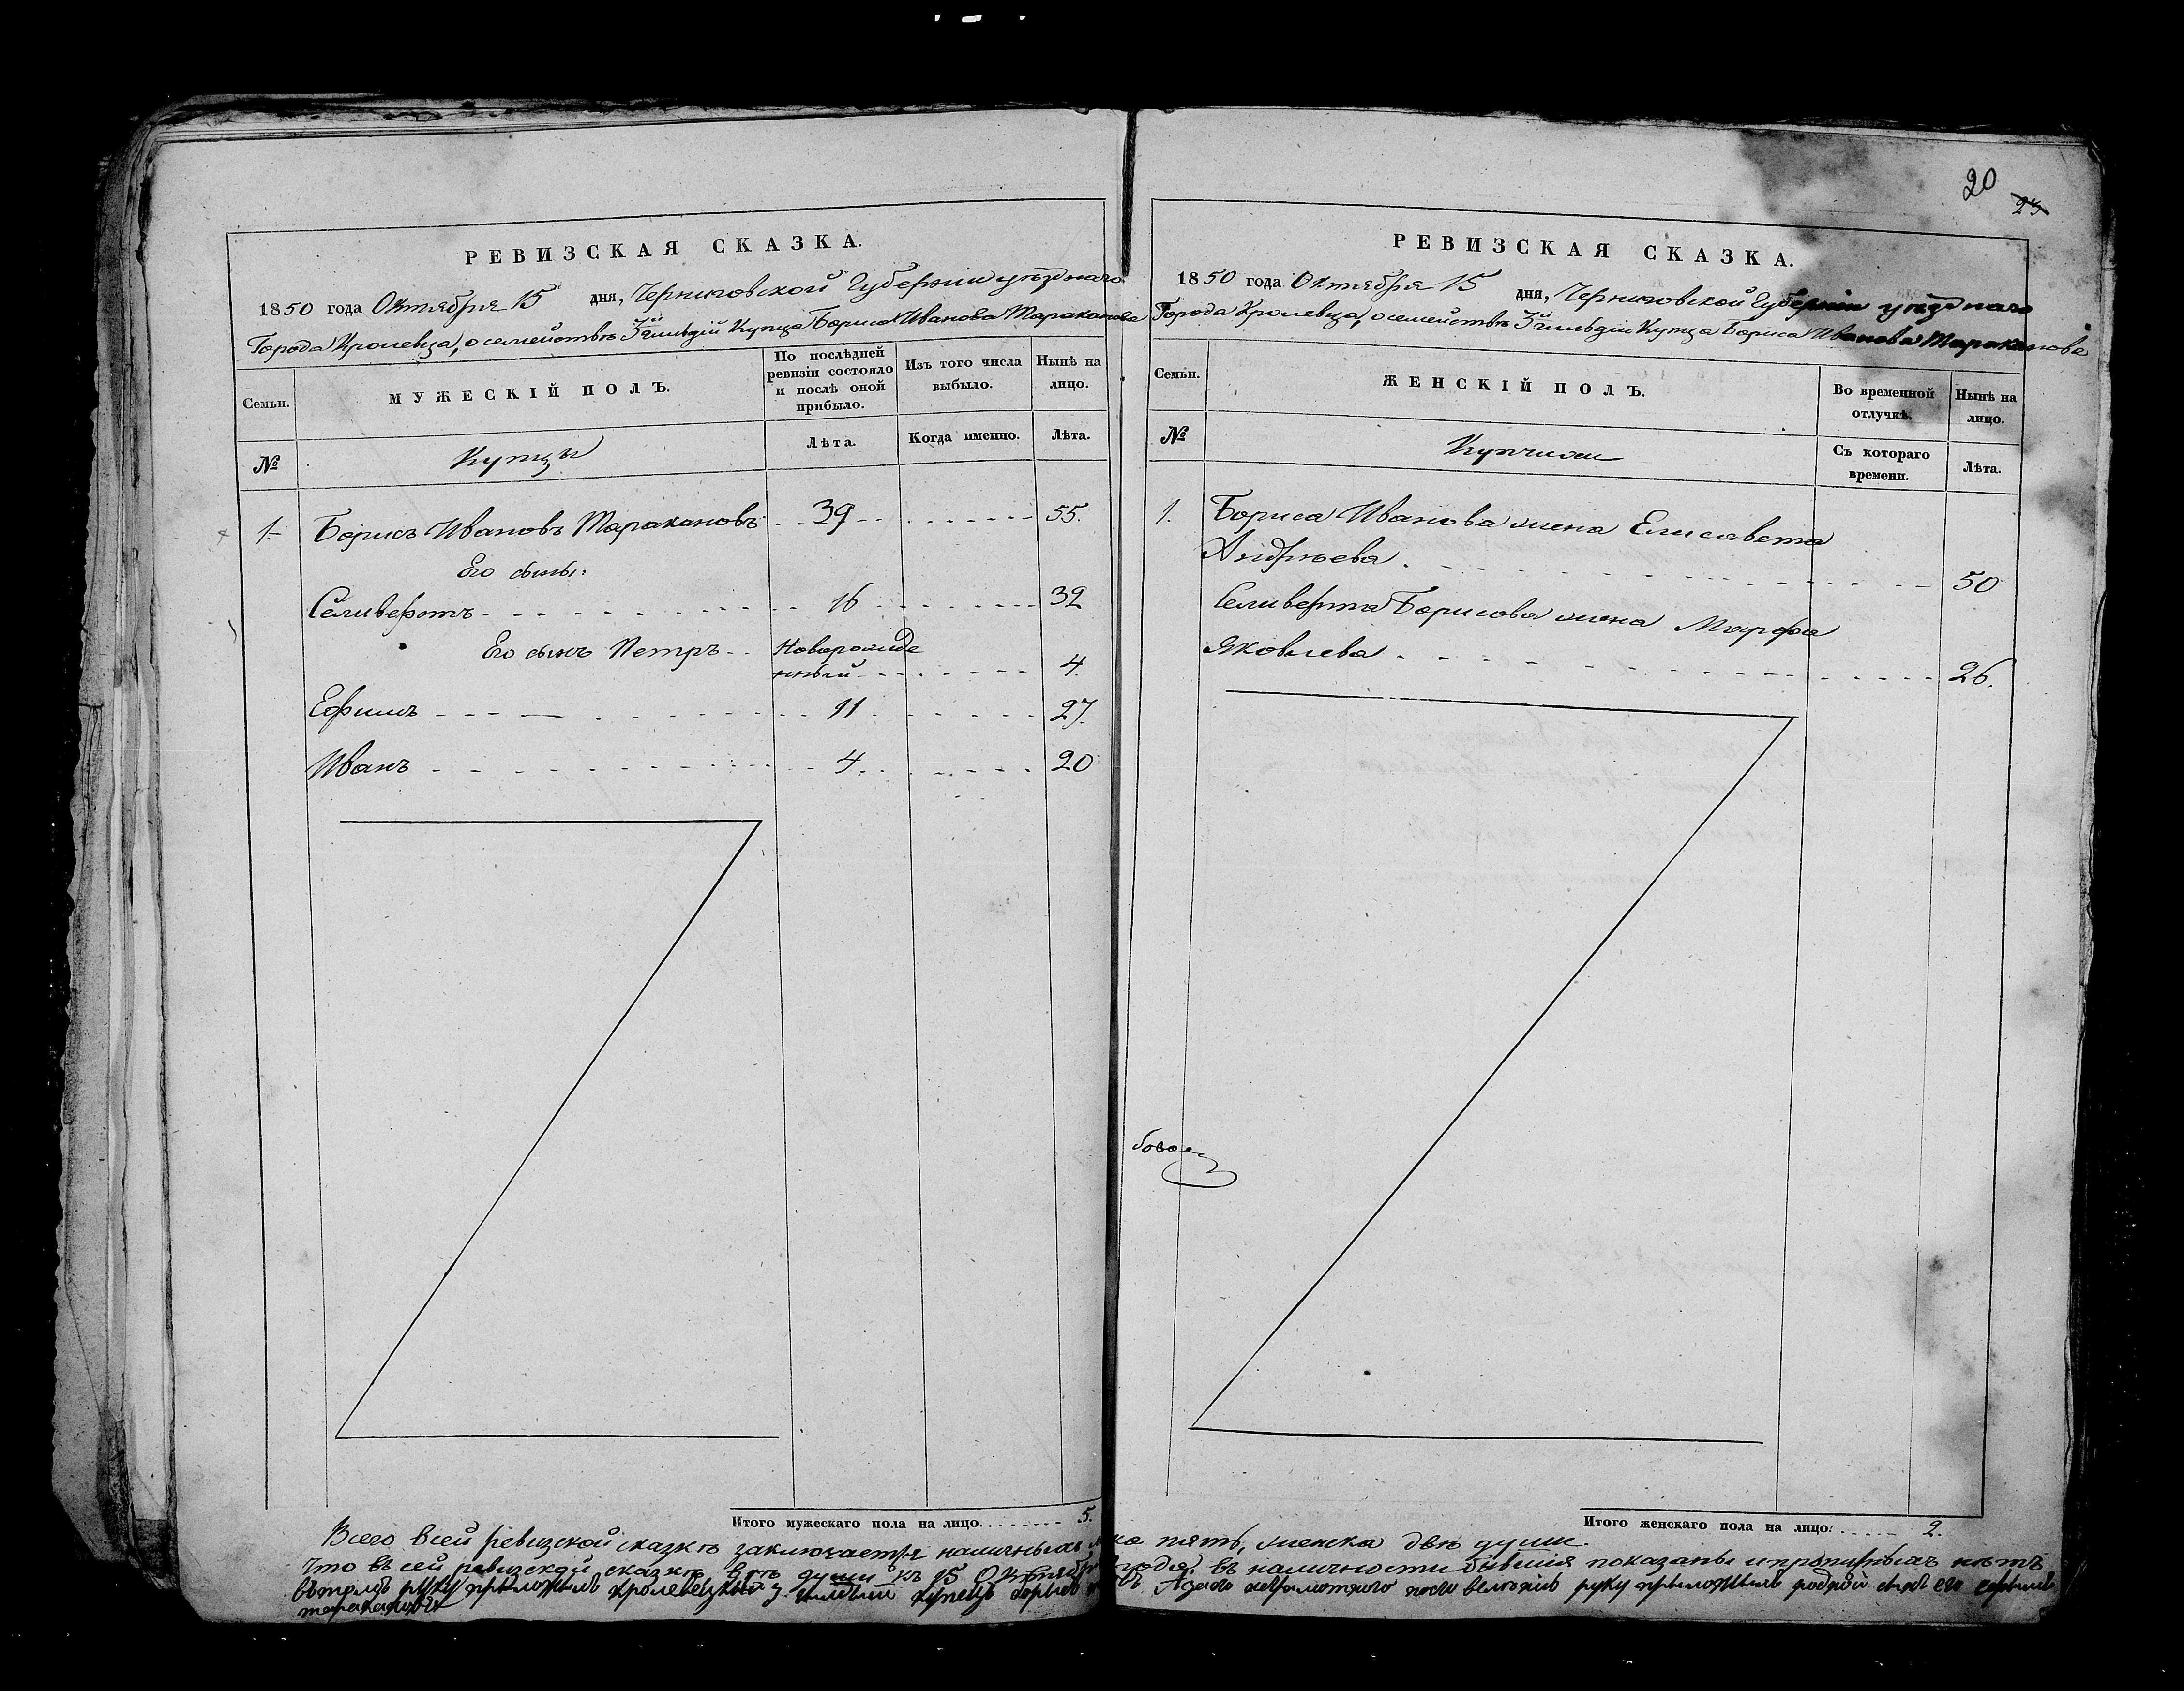 РЕВИЗСКАЯ СКАЗКА.
1850 года Октября 15 дня, Черниговской Губерніи уѣзднаго
Города Кролевца, о семействѣ 3й гильдіи Купца Бориса Иванова Тараканова
Семьи.
МУЖЕСКІЙ ПОЛЪ.
По послѣдней ревизіи состояло и послѣ оной прибыло.
Изъ того числа выбыло.
Нынѣ на лицо.
№
Купцы
Лѣта.
Когда именно.
Лѣта.
1. Борисъ Ивановъ Таракановъ 39 55.
Его сыны:
Селиверстъ 16 32
Его сынъ Петръ Новорожде
нный 4.
Ефимъ 11 27.
Иванъ 4. 20
Итого мужескаго пола на лицо 5.
20
23
РЕВИЗСКАЯ СКАЗКА.
1850 года Октября 15 дня, Черниговской Губерніи уѣзднаго
Города Кролевца, о семействѣ 3й гильдіи Купца Бориса Иванова Тараканова
Семьи.
ЖЕНСКІЙ ПОЛЪ.
Во временной отлучкѣ.
Нынѣ на лицо.
№
Купчихи
Съ котораго времени.
Лѣта.
1. Бориса Иванова жена Елисавета
Андрѣева 50
Селиверста Борисова жена Марфа
Яковлева 26.
Итого женскаго пола на лицо: 2.
Всего всей ревизской сказкѣ заключается наличныхъ пять, женска двѣ души.
Что въ сей ревизской сказкѣ всѣ души къ 15 Октября года въ наличности бывшія показаны и прописныхъ нѣтъ
въ томъ руку приложилъ кролевецкий 3 гильдіи купецъ борисъ руку приложилъ родной сынъ его ефимъ
таракановъ